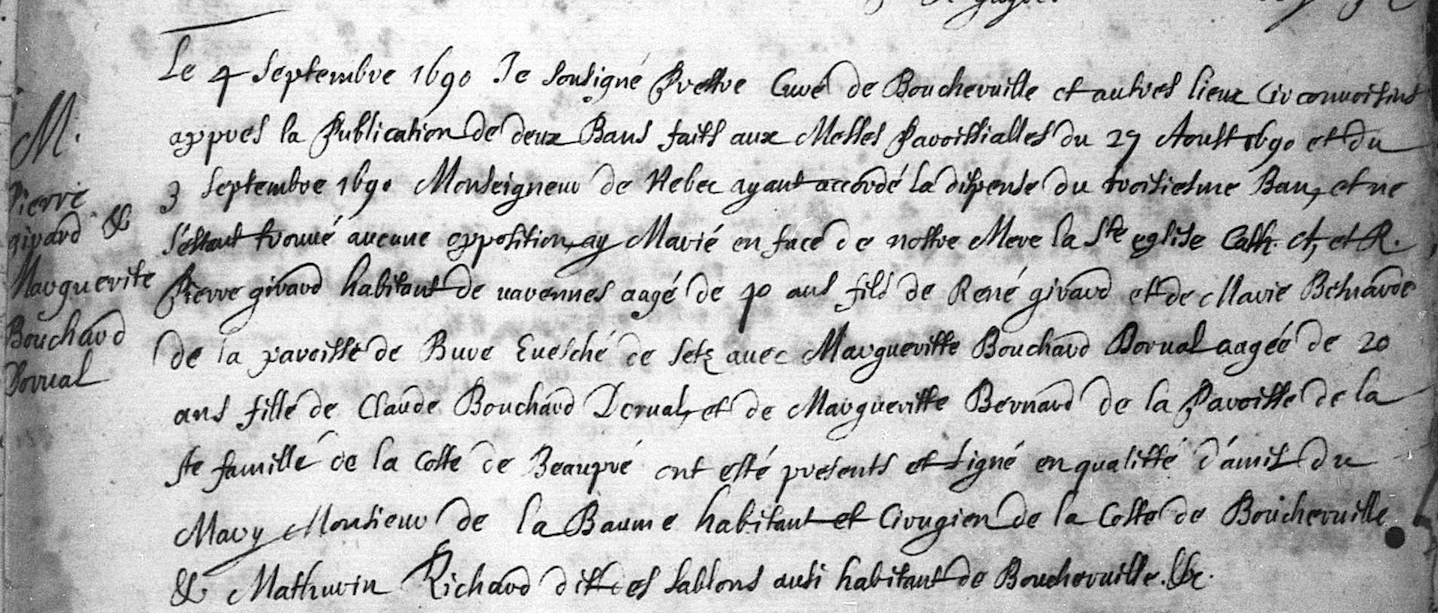 Le 4 Septembre 1690 Je Sousigné Prestre Curé de Boucheruille et autres lieux Circonuoisins
appres la Publication de deux Bans faits aux Messes Paroissialles du 27 Aoust 1690 et du
3 Septembre 1690 Monseigneur de Kebec ayant accordé la dispense du troisiesme Ban, et ne
s'estant trouué aucune opposition, ay Marié en face de nostre Mere la Ste eglise Cath. et R.
Pierre girard habitant de uarennes aagé de 40 ans fils de René girard et de Marie
de la paroisse de Evesché de auec Margueritte Bouchard Dorual aagée de 20
ans fille de Claude Bouchard Dorual, et de Margueritte Bernard de la Paroisse de la
ste famille de la Coste de Beaupré ont esté presents et signé en qualitté d'amis du
Mary Monsieur de la Baume habitant et Cirugien de la Coste de Boucheruille
& Mathurin Richard dit des sablons ausi habitant de Boucheruille. &c.
M.
Pierre
girard &
Marguerite
Bouchard
Dorual